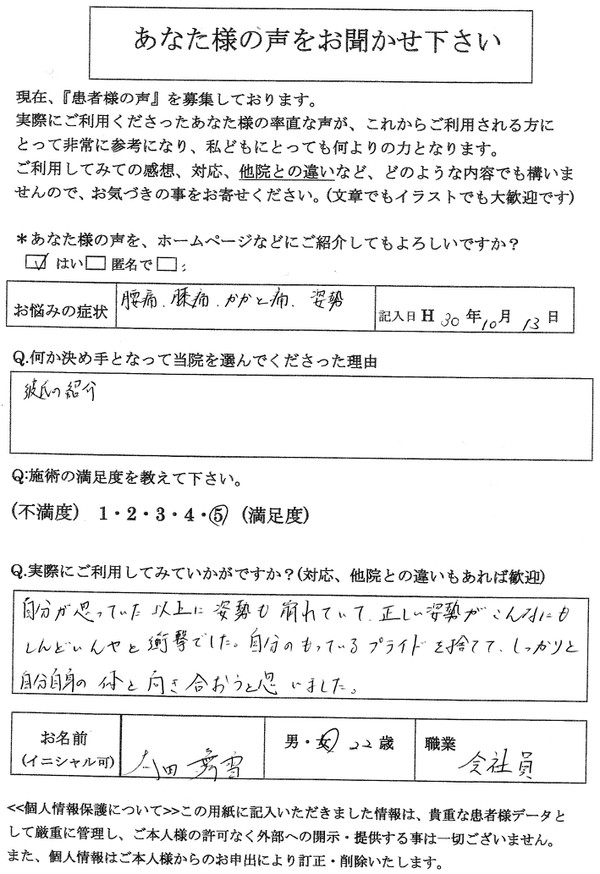 あなた様の声をお聞かせ下さい
現在、『患者様の声』を募集しております。
実際にご利用くださったあなた様の率直な声が、これからご利用される方に
とって非常に参考になり、私どもにとっても何よりの力となります。
ご利用してみての感想、対応、他院との違いなど、どのような内容でも構いま
せんので、お気づきの事をお寄せください。(文章でもイラストでも大歓迎です)
＊あなた様の声を、ホームページなどにご紹介してもよろしいですか？
☑はい□匿名で□;
お悩みの症状 腰痛、膝痛、かかと痛、姿勢 記入日 H 30 年 10 月 13 日
Q.何か決め手となって当院を選んでくださった理由
彼氏の紹介
Q:施術の満足度を教えて下さい。
(不満度) 1・2・3・4・⑤ (満足度)
Q.実際にご利用してみていかがですか？(対応、他院との違いもあれば歓迎)
自分が思っていた以上に姿勢も崩れていて、正しい姿勢がこんなにも
しんどいんやと衝撃でした。自分のもっているプライドを捨てて、しっかりと
自分自身の体と向き合おうと思いました。
お名前 男・女 22歳 職業 会社員
(イニシャル可) 田
<<個人情報保護について>>この用紙に記入いただきました情報は、貴重な患者様データと
して厳重に管理し、ご本人様の許可なく外部への開示・提供する事は一切ございません。
また、個人情報はご本人様からのお申出により訂正・削除いたします。